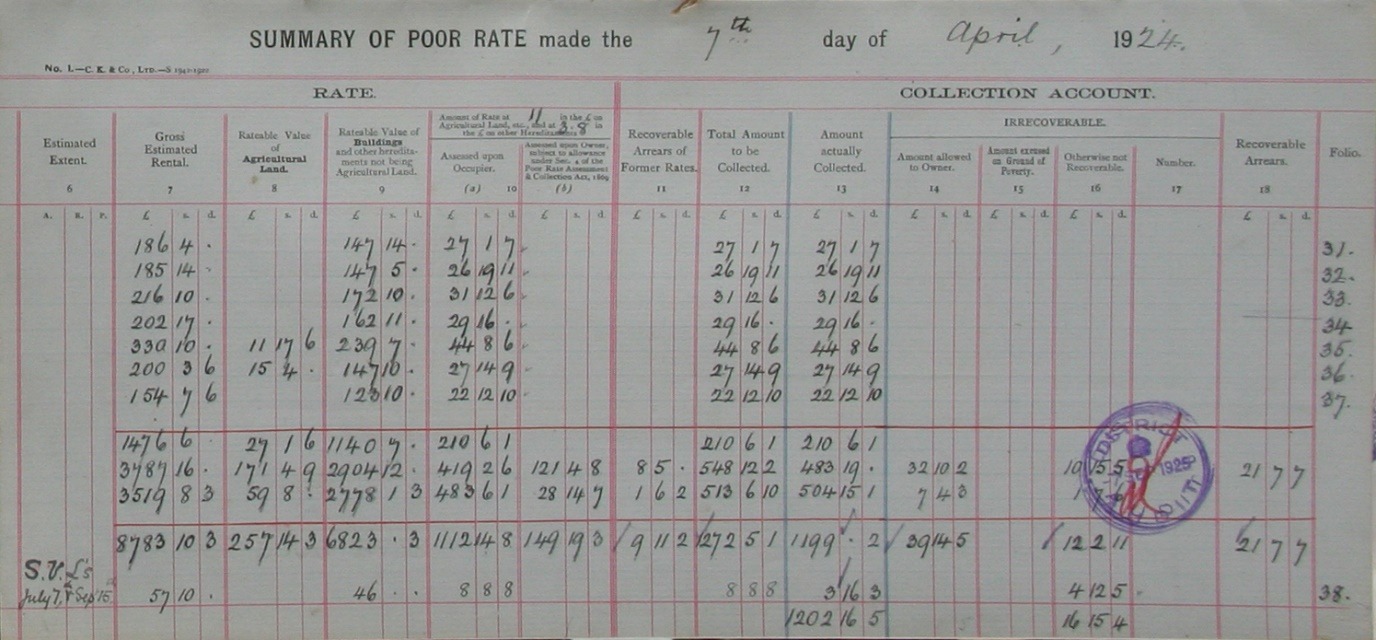 SUMMARY OF POOR RATE made the 7th day of April, 1924.
No. 1.—C. K. & Co, LTD.—S 1942-1922
RATE. COLLECTION ACCOUNT.
Estimated Extent. 6
Gross Estimated Rental. 7
Rateable Value of Agricultural Land. 8
Rateable Value of Buildings and other heredita-ments not being Agricultural Land. 9
Amount of Rate at 11 in the £ on Agricultural Land, etc., and at 3.8 in the £ on other Hereditaments
Assessed upon Occupier. (a) 10
Assessed upon Owner, subject to allowance under Sec. 4 of the Poor Rate Assessment & Collection Act, 1869 (b)
Recoverable Arrears of Former Rates. 11
Total Amount to be Collected. 12
Amount actually Collected. 13
IRRECOVERABLE.
Amount allowed to Owner. 14
Amount excused on Ground of Poverty. 15
Otherwise not Recoverable. 16
Number. 17
Recoverable Arrears. 18
Folio.
A. R. P. £ s. d. £ s. d. £ s. d. £ s. d. £ s. d. £ s. d. £ s. d. £ s. d. £ s. d. £ s. d. £ s. d. £ s. d.
186 4 . 147 14 . 27 1 7 27 1 7 27 1 7 31.
185 14 . 147 5 . 26 19 11 26 19 11 26 19 11 32.
216 10 . 172 10 . 31 12 6 31 12 6 31 12 6 33.
202 17 . 162 11 . 29 16 . 29 16 . 29 16 . 34
330 10 . 11 17 6 239 7 . 44 8 6 44 8 6 44 8 6 35.
200 3 6 15 4 . 147 10 . 27 14 9 27 14 9 27 14 9 36.
154 7 6 123 10 . 22 12 10 22 12 10 22 12 10 37.
1476 6 27 1 6 1140 7 . 210 6 1 210 6 1 210 6 1
3787 16 . 171 4 9 2904 12 . 419 2 6 121 4 8 8 5 . 548 12 2 483 19 . 32 10 2 10 15 5 21 7 7
3519 8 3 59 8 . 2778 1 3 483 6 1 28 14 7 1 6 2 513 6 10 504 15 1 7 4 3 1
8783 10 3 257 14 3 6823 . 3 1112 14 8 149 19 3 9 11 2 1272 5 1 1199 . 2 39 14 5 12 2 11 21 7 7
S.V.L's
July 7, & Sep 15 57 10 . 46 . . 8 8 8 8 8 8 3 16 3 4 12 5 38.
1202 16 5 16 15 4
DISTRICT
1925
AUDITOR